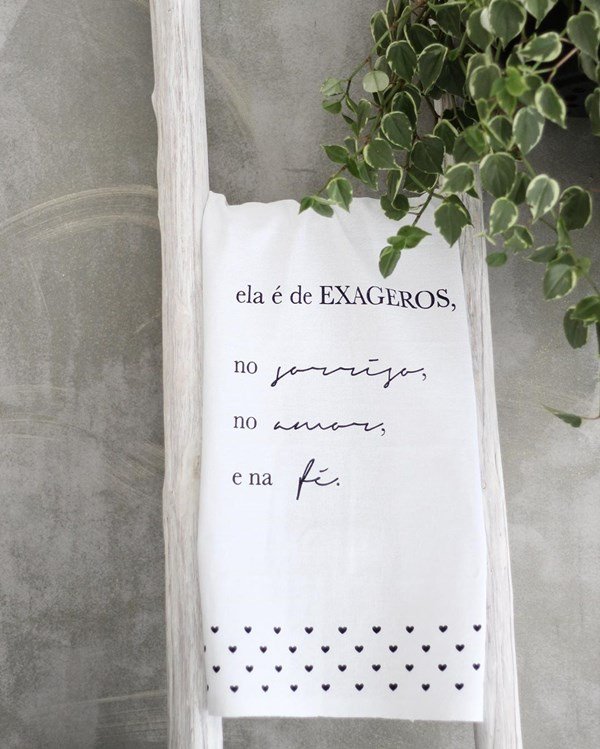 ela é de EXAGEROS,
no sorriso,
no amor,
e na fé.